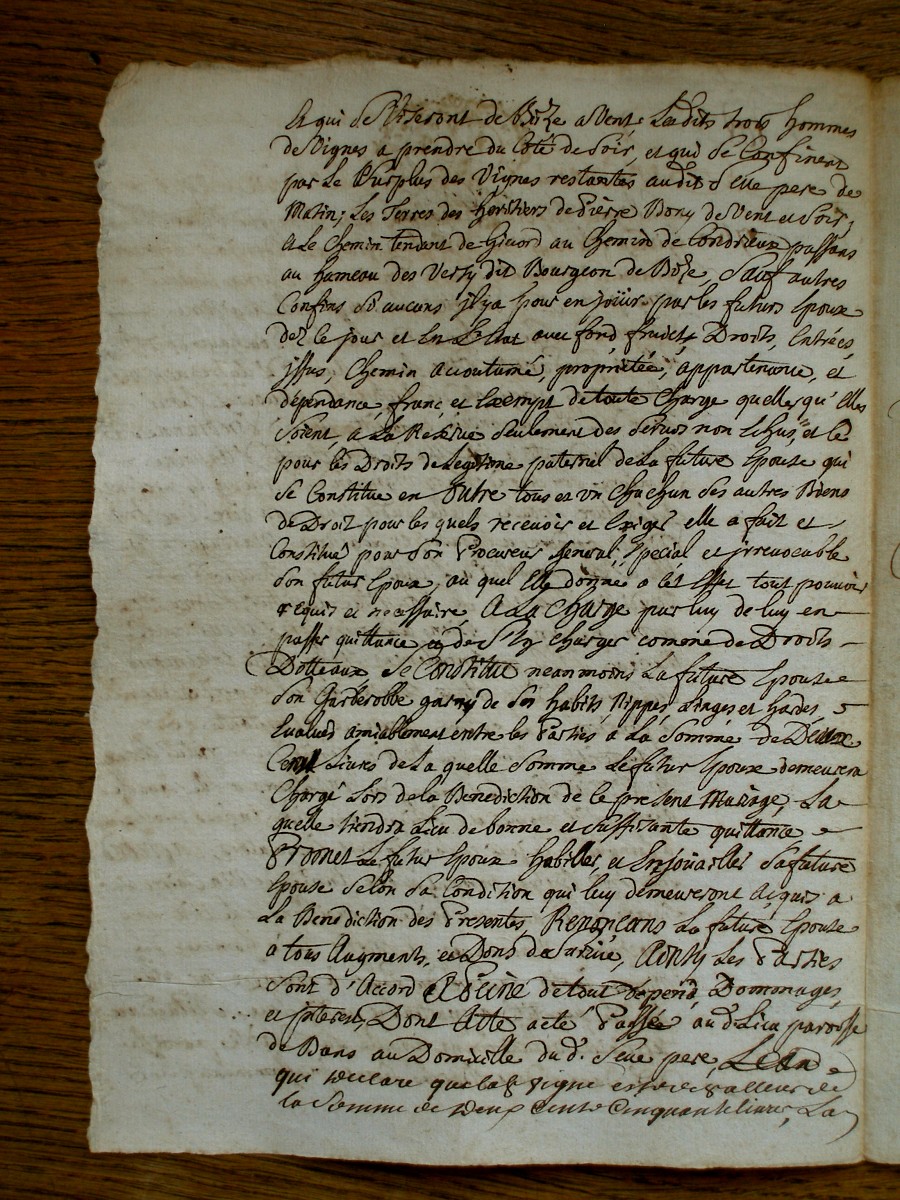 et qui se viseront de Bize a vent Lesdits trois hommes
de Vignes a prendre du Coté de Soir, et qui se Confinent
par Le Surplus des Vignes restantes audit Sr pere de
Matin; Les Terres des heritiers de Pierre Bony de Vent et Soir,
et Le Chemin tendant de Givord au Chemin de Condrieux passans
au hameau des Versy dit Bourgeon de Bize, Sauf autres
Confins sy aucuns jl y a pour en joüir par les futurs Epoux
dez ce jour et En L'Etat avec fond fruicts Droits, Entrées
jssus, Chemin accoutumé, proprietée, appartenance, et
dépendance franc et Exempt de toute Charge quelles qu'Elles
soient, a La Reserve seulement des Servis non Echus, et ce
pour les Droits de Legitime paternel de La future Epouse qui
se Constitue en Outre tous et un chachun ses autres Biens
de Droit pour les quels recevoir et Exiger elle a fait et
Constitué pour son Procureur general, special et jrrevocable
son futur Epoux, au quel Elle donne a cet Effet tout pouvoir
requis et necessaire, A La Charge par luy de luy en
passer quittance et de s'En Charger comme de Droits
Dotteaux, Se Constitue neanmoins La future Epouse
son Garderobbe garny de ses habits Nippes Linges et hardes
Evalués amiablement entre les Parties a La Somme de Deux
Cent Livres de La quelle Somme Le futur Epoux demeurera
Chargé Lors de la Benediction de ce present Mariage, La
quelle tiendra Lieu de bonne et suffisante quittance
Promet Le futur Epoux habiller et Enjoüailler sa future
Epouse selon sa Condition qui luy demeureront acquis a
La Benediction des Presentes, Renonçans La future Epouse
a tous Augments, et Dons de survie, Ainsy Les Parties
sont d'Accord A Peine de tout depend Dommages
et jnterest, Dont Atte acté Passée aud. Lieu paroisse
de Bans au Domicille du d. Sr pere, L'an
qui declare que lad. vigne est de valleur de
la Somme de deux Cents Cinquante livres, La